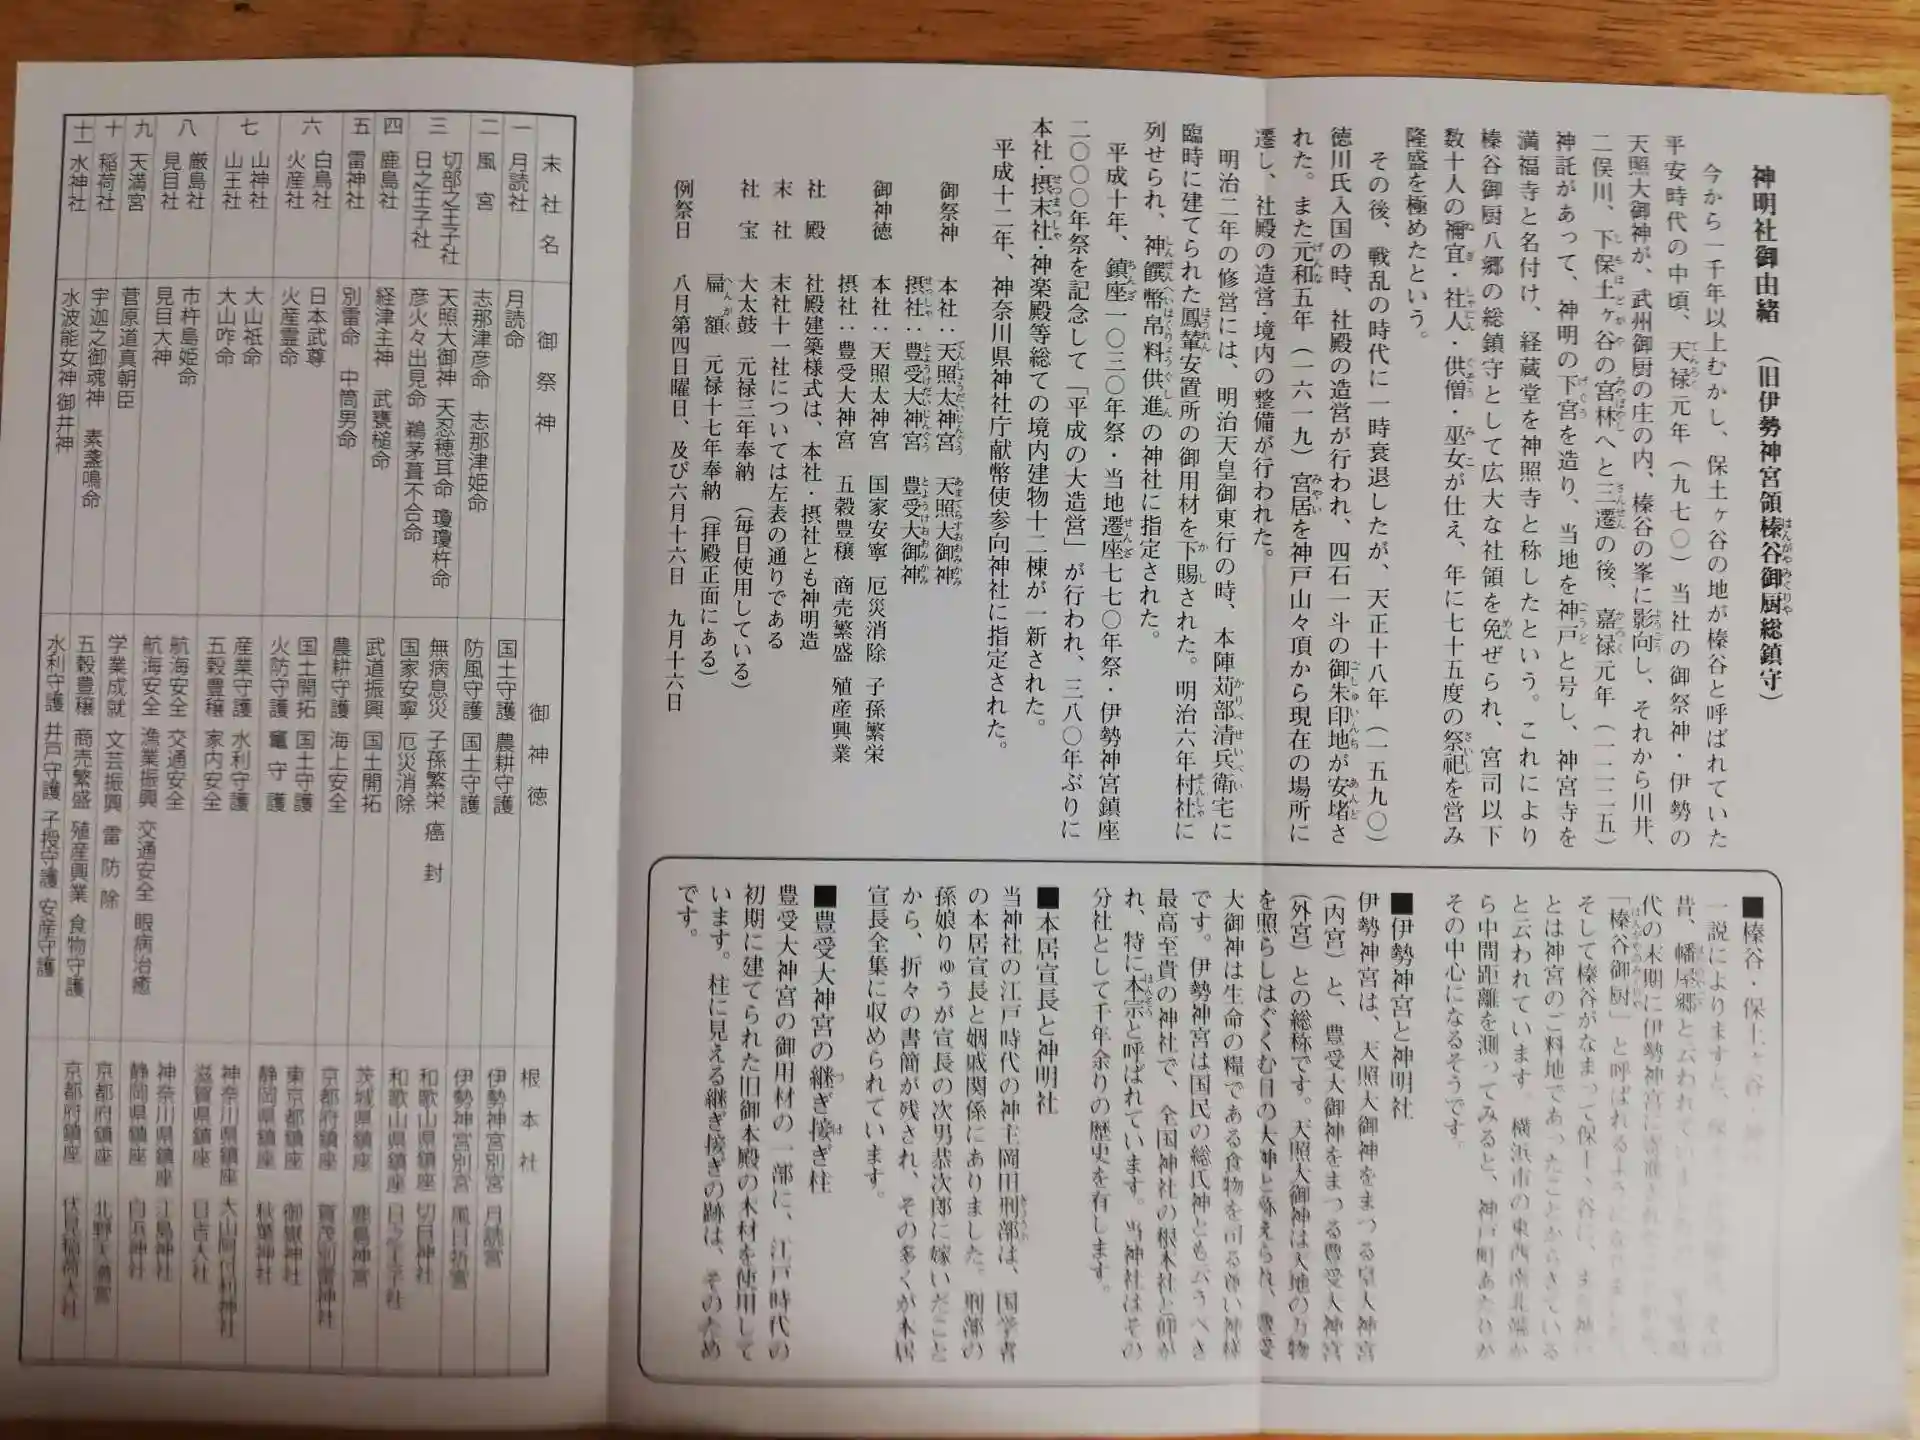 神明社御由緒 (旧伊勢神宮領榛谷御厨総鎮守)
今から一千年以上むかし、保土ヶ谷の地が榛谷と呼ばれていた
平安時代の中頃、天禄元年(九七〇)当社の御祭神・伊勢の
天照大御神が、武州御厨の庄の内、榛谷の峯に影向し、それから川井、
二俣川、下保土ヶ谷の宮林へと三遷の後、嘉禄元年(一二二五)
神託があって、神明の下宮を造り、当地を神戸と号し、神宮寺を
満福寺と名付け、経蔵堂を神照寺と称したという。これにより
榛谷御厨八郷の総鎮守として広大な社領を免ぜられ、宮司以下
数十人の禰宜・社人・供僧・巫女が仕え、年に七十五度の祭祀を営み
隆盛を極めたという。
その後、戦乱の時代に一時衰退したが、天正十八年(一五九〇)
徳川氏入国の時、社殿の造営が行われ、四石一斗の御朱印地が安堵さ
れた。また元和五年(一六一九)宮居を神戸山々頂から現在の場所に
遷し、社殿の造営・境内の整備が行われた。
明治二年の修営には、明治天皇御東行の時、本陣苅部清兵衛宅に
臨時に建てられた鳳輦安置所の御用材を下賜された。明治六年村社に
列せられ、神饌幣帛料供進の神社に指定された。
平成十年、鎮座一〇三〇年祭・当地遷座七七〇年祭・伊勢神宮鎮座
二〇〇〇年祭を記念して「平成の大造営」が行われ、三八〇年ぶりに
本社・摂末社・神楽殿等総ての境内建物十二棟が一新された。
平成十二年、神奈川県神社庁献幣使参向神社に指定された。
御祭神 本社:天照太神宮 天照大御神
摂社:豊受大神宮 豊受大御神
御神徳 本社:天照太神宮 国家安寧 厄災消除 子孫繁栄
摂社:豊受大神宮 五穀豊穣 商売繁盛 殖産興業
社殿 社殿建築様式は、本社・摂社とも神明造
末社 末社十一社については左表の通りである
社宝 大太鼓 元禄三年奉納 (毎日使用している)
扁額 元禄十七年奉納 (拝殿正面にある)
例祭日 八月第四日曜日、及び六月十六日 九月十六日
■榛谷・保土ヶ谷・
一説によりますと、
昔、幡屋郷と云われていま
代の末期に伊勢神宮に寄進
「榛谷御厨」と呼ばれる
そして榛谷がなまって保土ヶ谷に、また神
とは神宮のご料地であったことからきている
と云われています。横浜市の東西南北端か
ら中間距離を測ってみると、神戸町あたりが
その中心になるそうです。
■伊勢神宮と神明社
伊勢神宮は、天照大御神をまつる皇大神宮
(内宮)と、豊受大御神をまつる豊受大神宮
(外宮)との総称です。天照大御神は天地の万物
を照らしはぐくむ日の大神と称えられ、豊受
大御神は生命の糧である食物を司る尊い神様
です。伊勢神宮は国民の総氏神とも云うべき
最高至貴の神社で、全国神社の根本社と仰が
れ、特に本宗と呼ばれています。当神社はその
分社として千年余りの歴史を有します。
■本居宣長と神明社
当神社の江戸時代の神主岡田刑部は、国学者
の本居宣長と姻戚関係にありました。刑部の
孫娘りゅうが宣長の次男恭次郎に嫁いだこと
から、折々の書簡が残され、その多くが本居
宣長全集に収められています。
■豊受大神宮の継ぎ接ぎ柱
豊受大神宮の御用材の一部に、江戸時代の
初期に建てられた旧御本殿の木材を使用して
います。柱に見える継ぎ接ぎの跡は、そのため
です。
末社名 御祭神 御神徳 根本社
一 月読社 月読命 国土守護 農耕守護 伊勢神宮別宮 月読宮
二 風宮 志那津彦命 志那津姫命 防風守護 国土守護 伊勢神宮別宮 風日祈宮
三 切部之王子社 天照大御神 天忍穂耳命 瓊瓊杵命 無病息災 子孫繁栄 癌封 和歌山県鎮座 切目神社
日之王子社 彦火々出見命 鵜茅葺不合命 国家安寧 厄災消除 和歌山県鎮座 日之王子社
四 鹿島社 経津主神 武甕槌命 武道振興 国土開拓 茨城県鎮座 鹿島神宮
五 雷神社 別雷命 中筒男命 農耕守護 海上安全 京都府鎮座 賀茂別雷神社
六 白鳥社 日本武尊 国土開拓 国土守護 東京都鎮座 御嶽神社
火産社 火産霊命 火防守護 竃守護 静岡県鎮座 秋葉神社
七 山神社 大山祇命 産業守護 水利守護 神奈川県鎮座 大山阿夫利神社
山王社 大山咋命 五穀豊穣 家内安全 滋賀県鎮座 日吉大社
八 厳島社 市杵島姫命 航海安全 交通安全 神奈川県鎮座 江島神社
見目社 見目大神 航海安全 漁業振興 交通安全 眼病治癒 静岡県鎮座 白浜神社
九 天満宮 菅原道真朝臣 学業成就 文芸振興 雷防除 京都府鎮座 北野天満宮
十 稲荷社 宇迦之御魂神 素盞鳴命 五穀豊穣 商売繁盛 殖産興業 食物守護 京都府鎮座 伏見稲荷大社
十一 水神社 水波能女神 御井神 水利守護 井戸守護 子授守護 安産守護